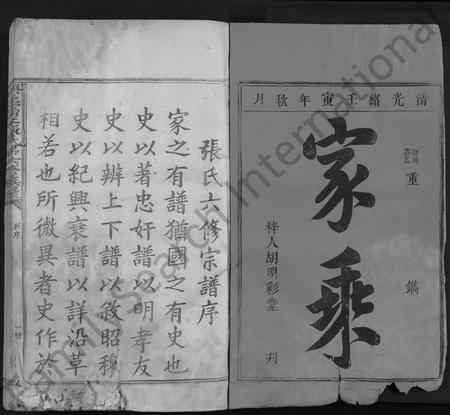 清光緒壬寅年秋月
重鐫
家乘
梓人胡明彩堂刊
張氏六修宗譜序
家之有譜猶國之有史也
史以著忠奸譜以明孝友
史以辨上下譜以敘昭穆
史以紀興衰譜以詳沿革
相若也所微異者史作於
FamilySearch International